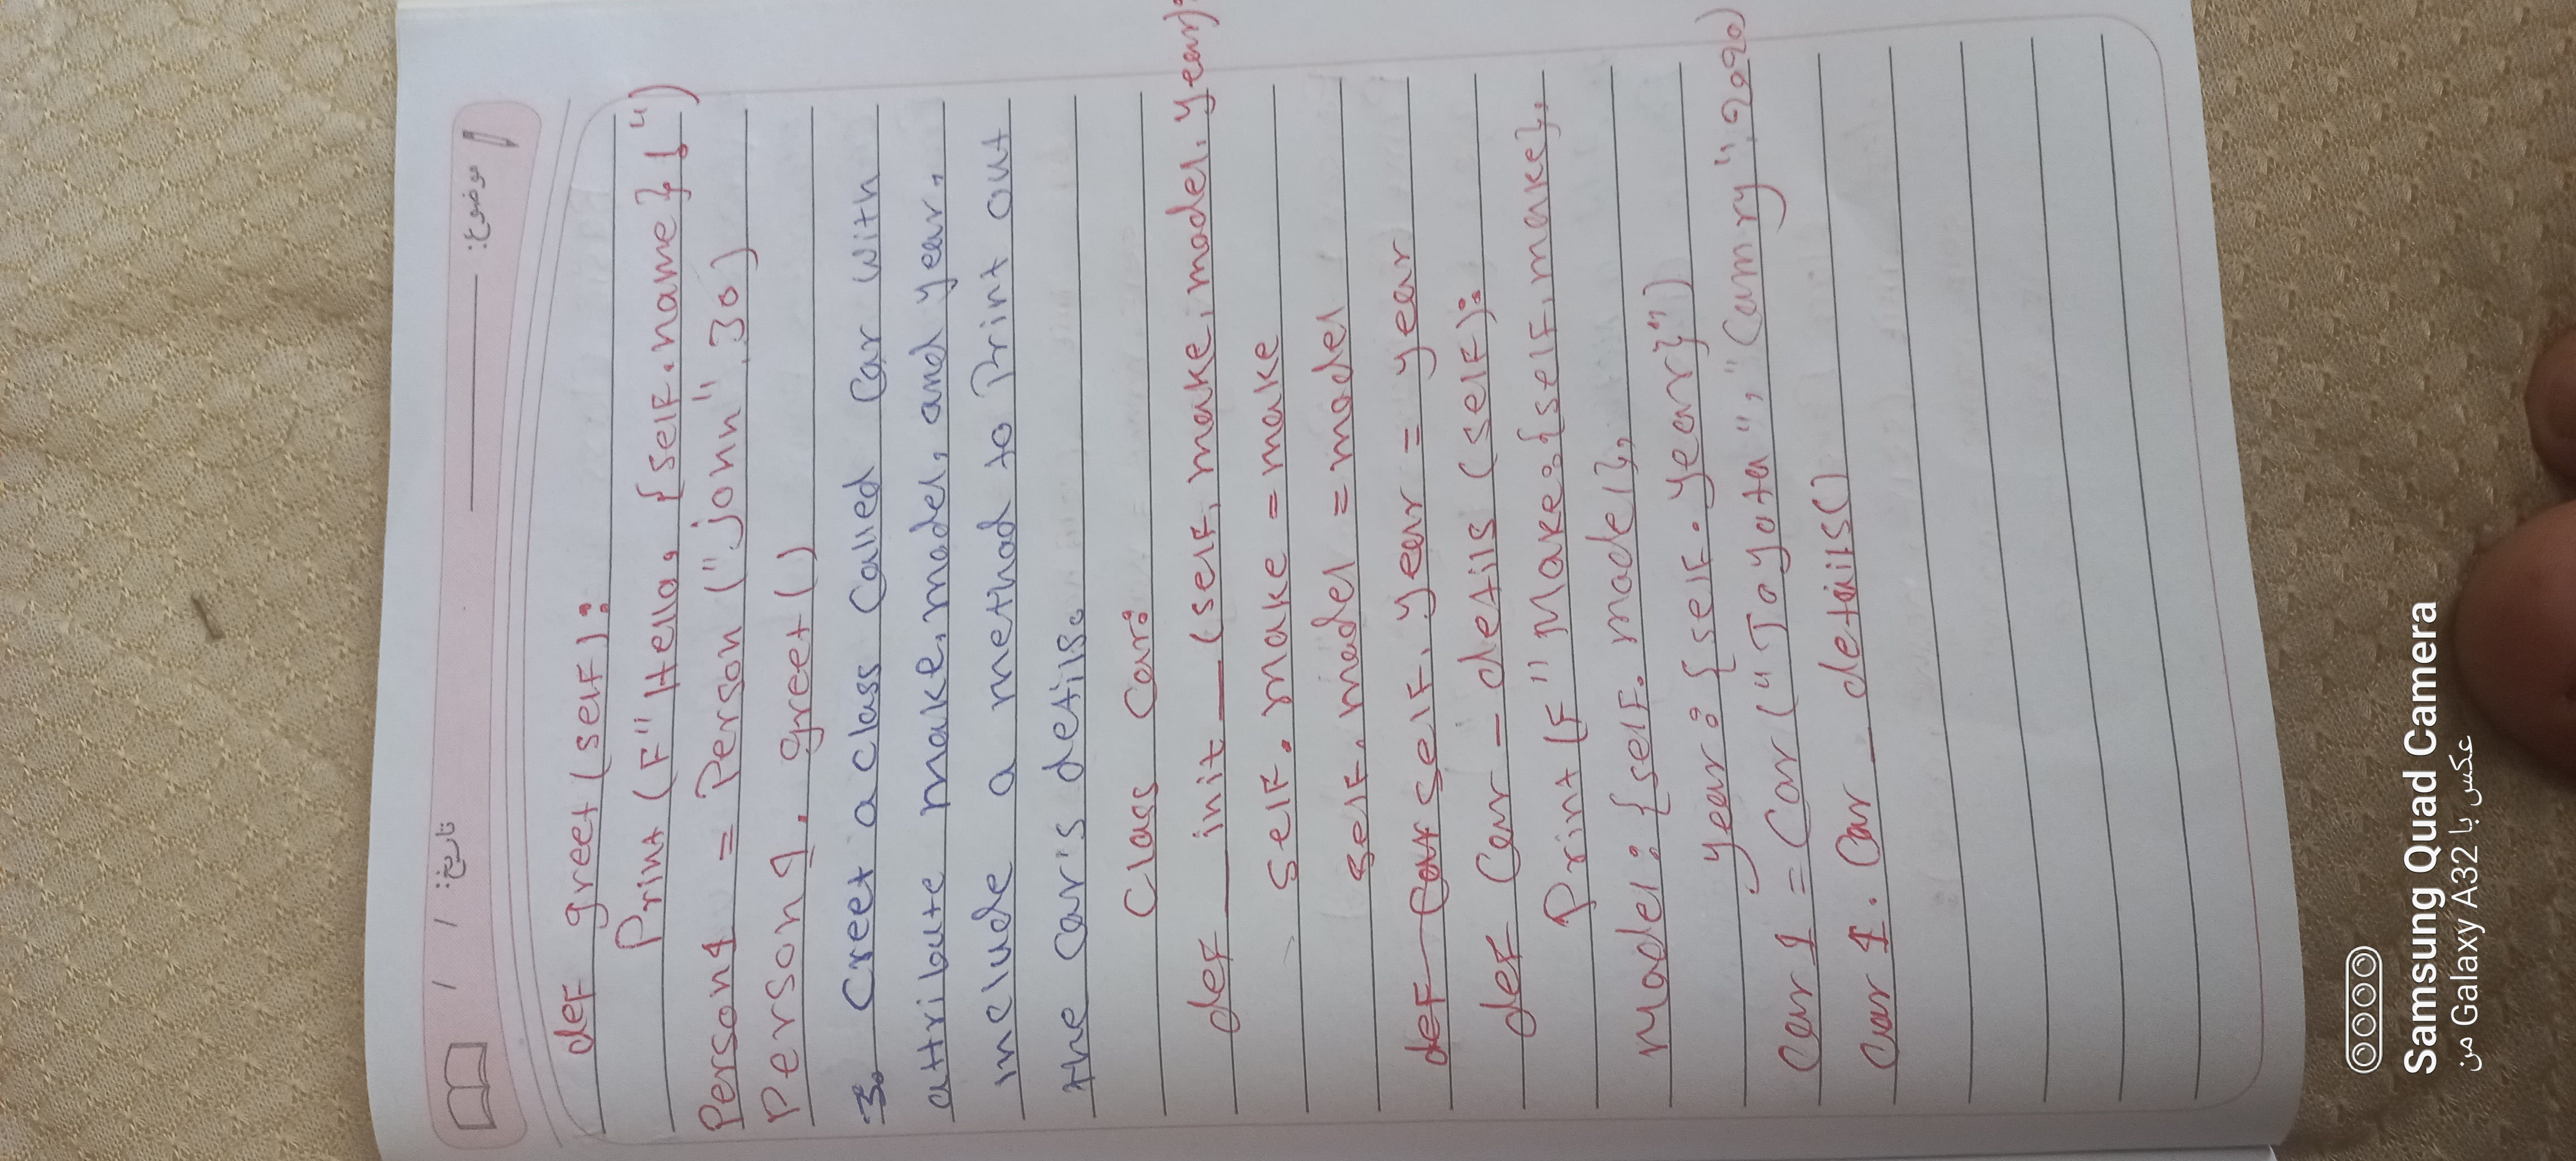 موضوع: تاریخ: / /
def greet (self):
Print (F"Hello, {self.name}!")
Person1 = Person ("john", 30)
Person1. greet()
3. Creet a class Called Car with
attribute make, model, and year,
include a method to Print out
the car's detils.
Class Car:
def __init__(self, make, model, year):
self. make = make
self. model = model
def Car self. year = year
def Car_detils (self):
Print (F"Make:{self. make},
Model: {self. model},
year: {self. year}")
Car1 = Car ("Toyota", "Camry", 2020)
Car1. Car_details()
Samsung Quad Camera
عکس با Galaxy A32 من